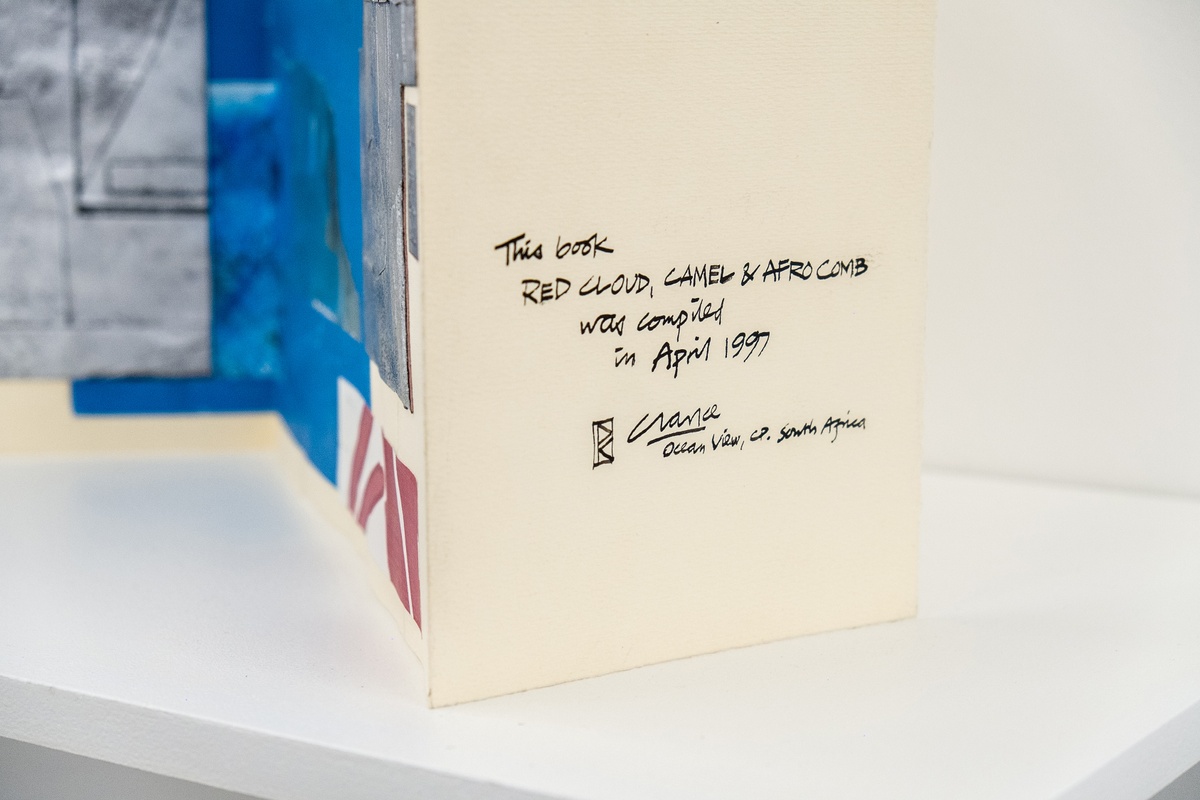 This book
RED CLOUD, CAMEL & AFRO COMB
was compiled
in April 1997
Ocean View, CP. South Africa